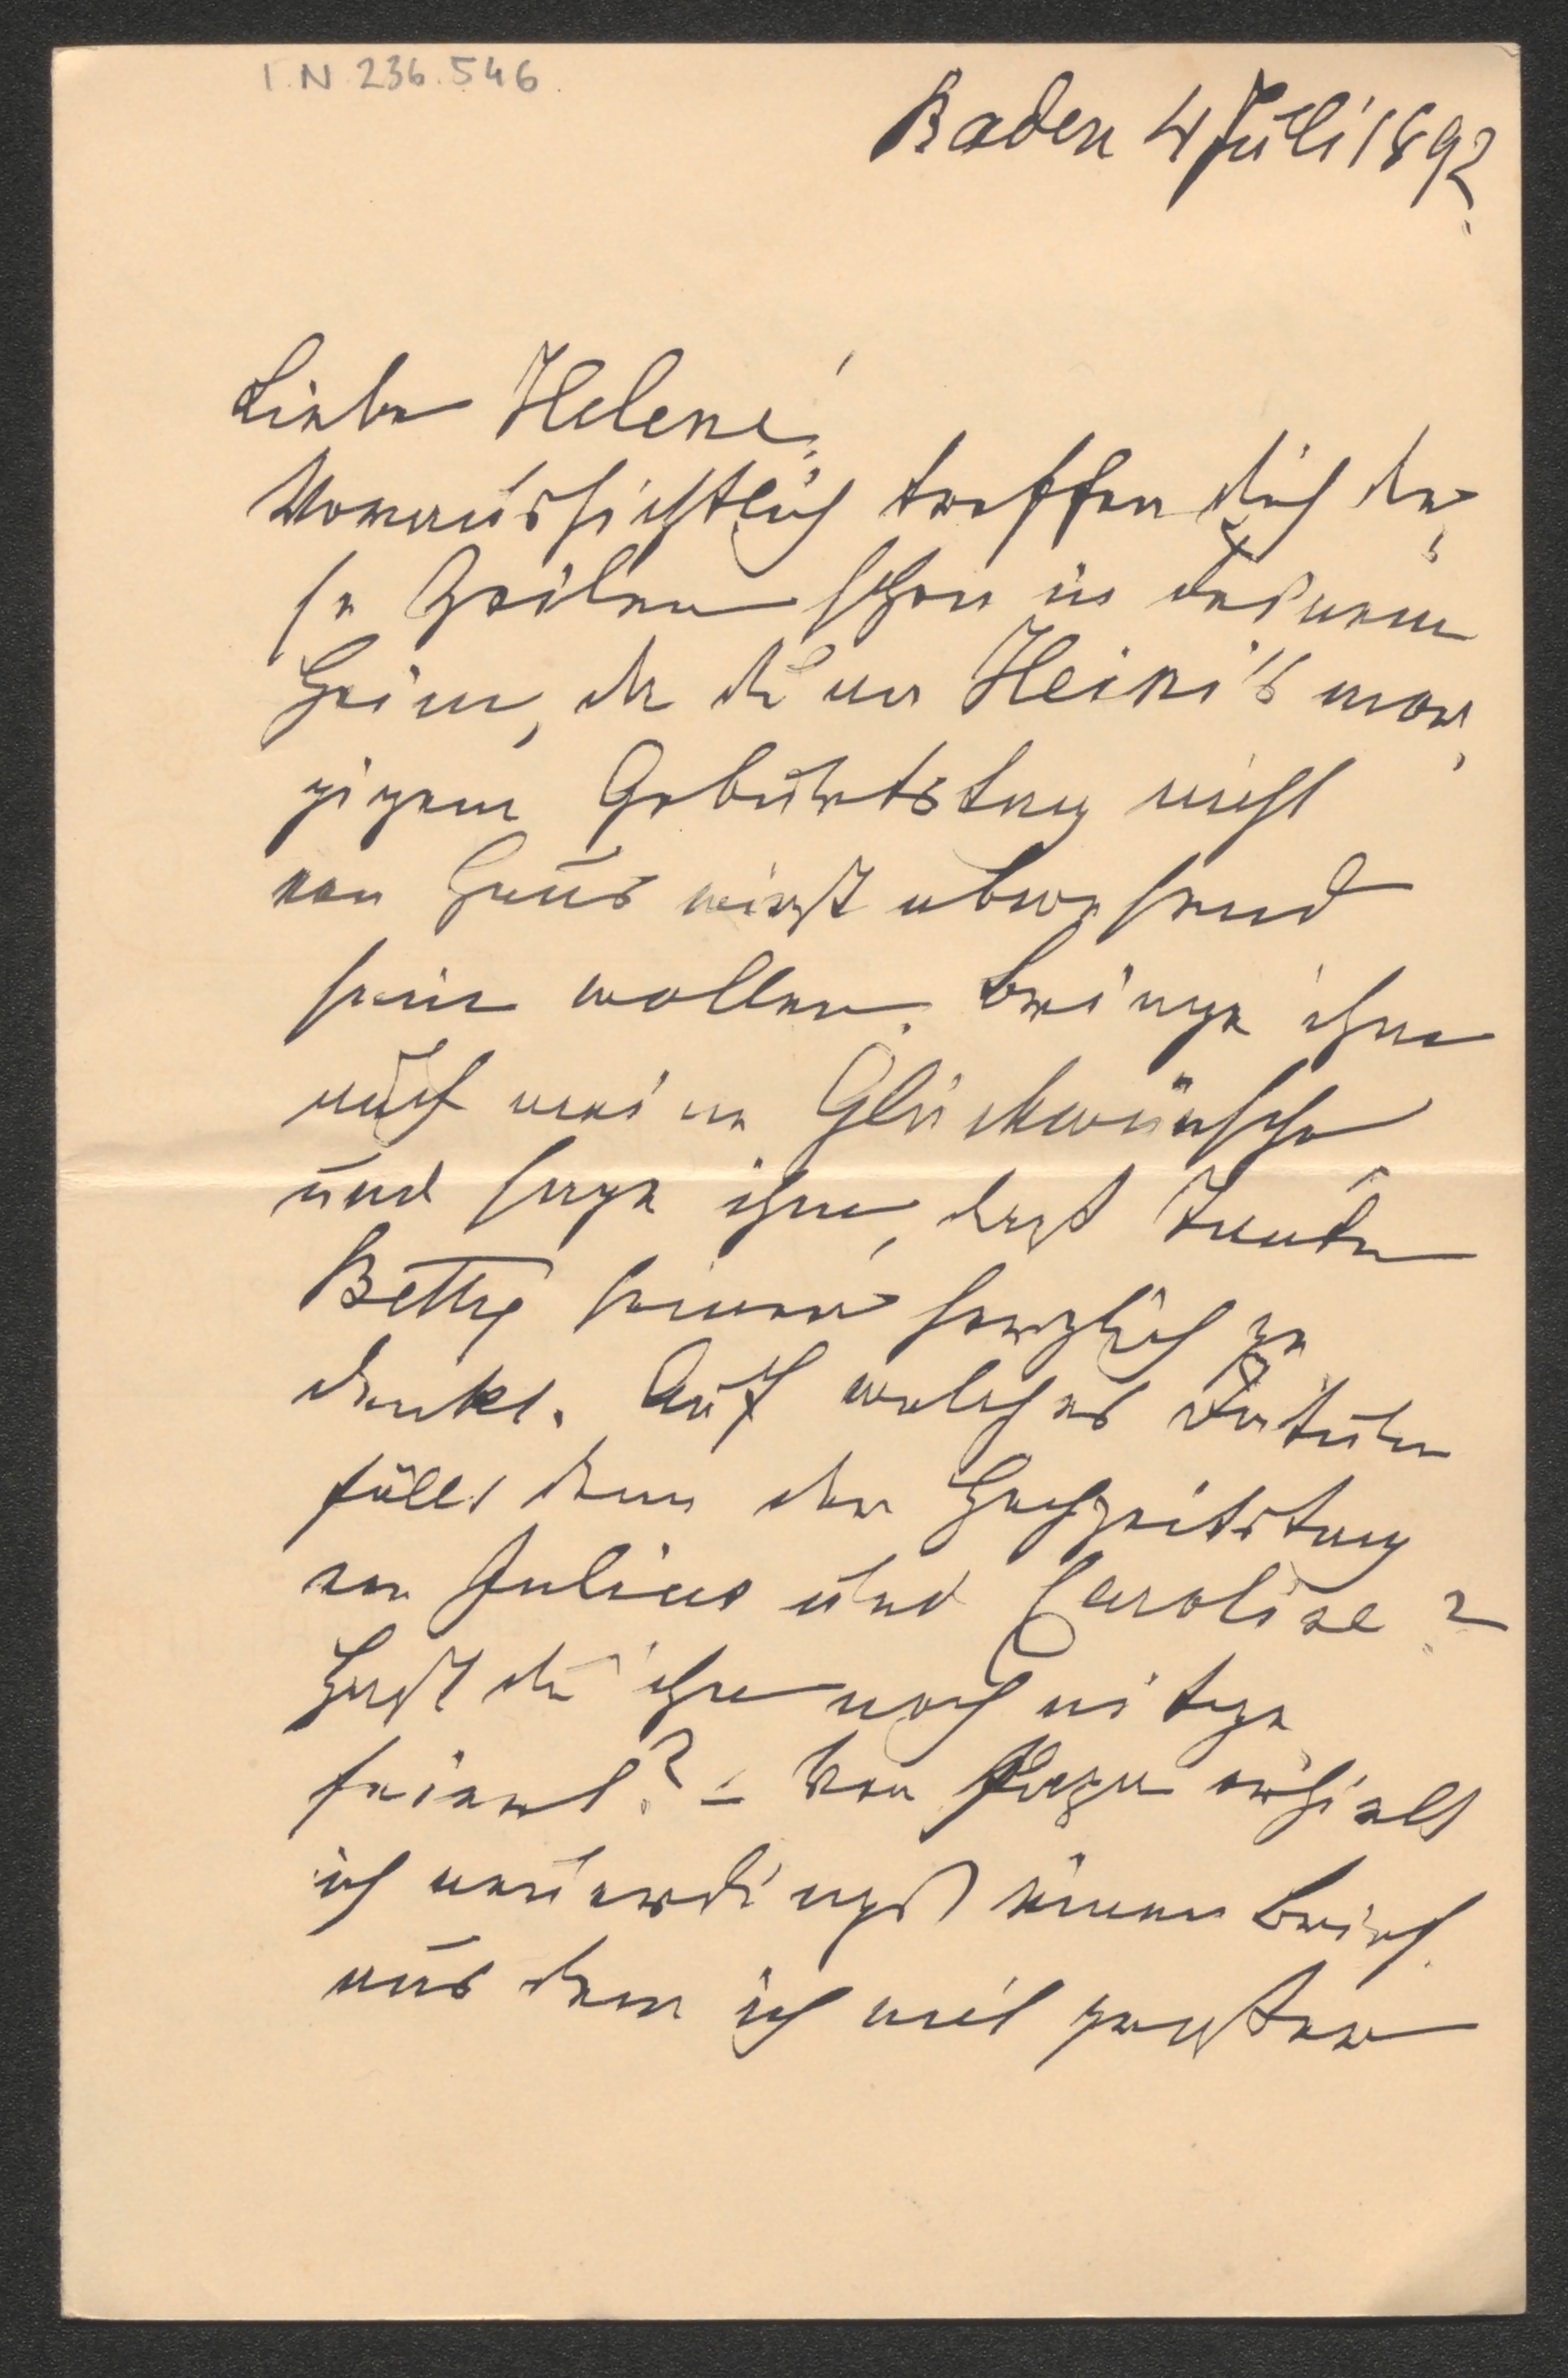 I.N. 236.546
Baden 4 Juli 1892
Liebe Helene!
Voraussichtlich treffen dich die,
se Zeilen schon in deinem
Heim, da du an Heini's mor,
gigem Geburtstag nicht
von Haus wirst abwesend
sein wollen. Bringe ihm
auch meine Glückwünsche
und sage ihm, dass Tante
Betty seiner herzlich ge
denkt. Auf welches Datum
fällt denn der Hochzeitstag
von Julius und Caroline?
Hast du ihm noch nitge
feiert? – Von erhielt
ich neuerdings einen Brief
aus dem ich viel